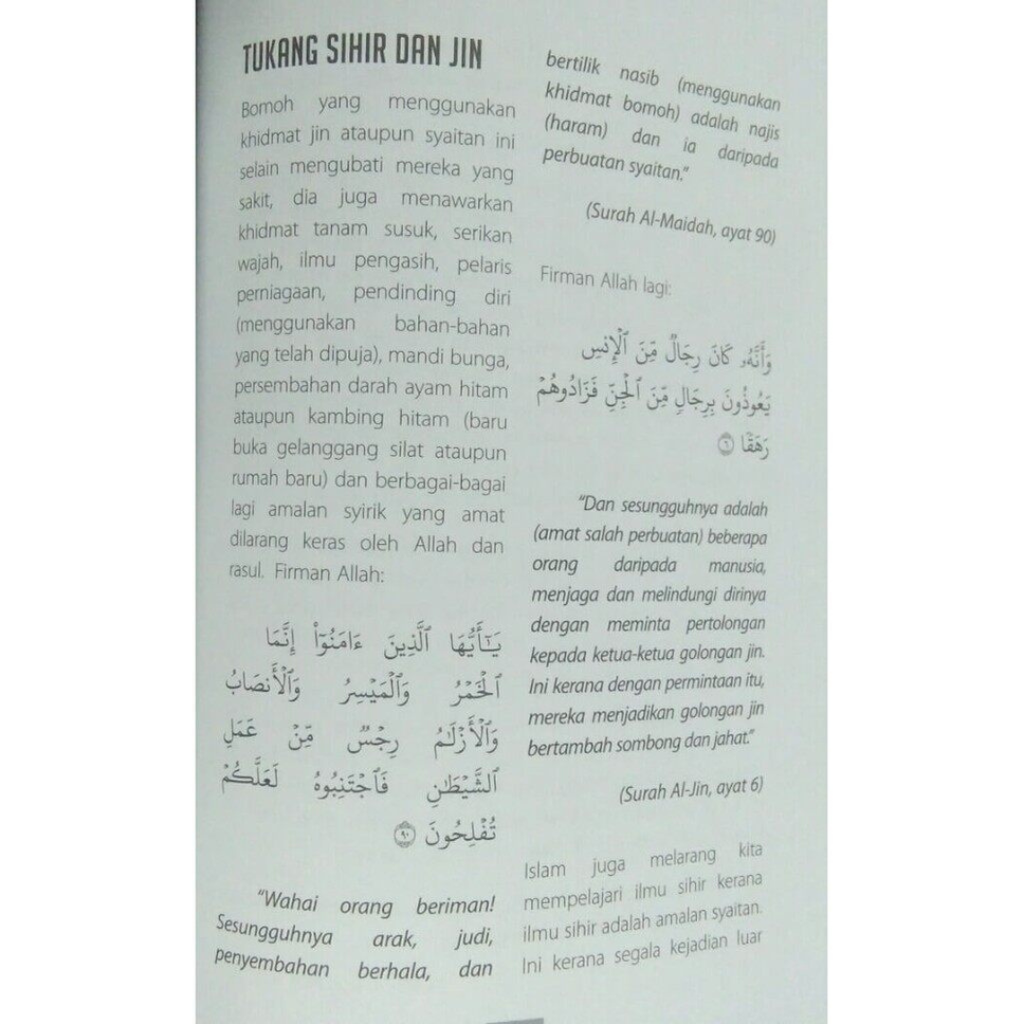 TUKANG SIHIR DAN JIN
Bomoh yang menggunakan
khidmat jin ataupun syaitan ini
selain mengubati mereka yang
sakit, dia juga menawarkan
khidmat tanam susuk, serikan
wajah, ilmu pengasih, pelaris
perniagaan, pendinding diri
(menggunakan bahan-bahan
yang telah dipuja), mandi bunga,
persembahan darah ayam hitam
ataupun kambing hitam (baru
buka gelanggang silat ataupun
rumah baru) dan berbagai-bagai
lagi amalan syirik yang amat
dilarang keras oleh Allah dan
rasul. Firman Allah:
يَـٰٓأَيُّهَا ٱلَّذِينَ ءَامَنُوٓا۟ إِنَّمَا
ٱلْخَمْرُ وَٱلْمَيْسِرُ وَٱلْأَنصَابُ
وَٱلْأَزْلَـٰمُ رِجْسٌ مِّنْ عَمَلِ
ٱلشَّيْطَـٰنِ فَٱجْتَنِبُوهُ لَعَلَّكُمْ
تُفْلِحُونَ ٩٠
“Wahai orang beriman!
Sesungguhnya arak, judi,
penyembahan berhala, dan
bertilik nasib (menggunakan
khidmat bomoh) adalah najis
(haram) dan ia daripada
perbuatan syaitan.”
(Surah Al-Maidah, ayat 90)
Firman Allah lagi:
وَأَنَّهُۥ كَانَ رِجَالٌ مِّنَ ٱلْإِنسِ
يَعُوذُونَ بِرِجَالٍ مِّنَ ٱلْجِنِّ فَزَادُوهُمْ
رَهَقًا ٦
“Dan sesungguhnya adalah
(amat salah perbuatan) beberapa
orang daripada manusia,
menjaga dan melindungi dirinya
dengan meminta pertolongan
kepada ketua-ketua golongan jin.
Ini kerana dengan permintaan itu,
mereka menjadikan golongan jin
bertambah sombong dan jahat.”
(Surah Al-Jin, ayat 6)
Islam juga melarang kita
mempelajari ilmu sihir kerana
ilmu sihir adalah amalan syaitan.
Ini kerana segala kejadian luar